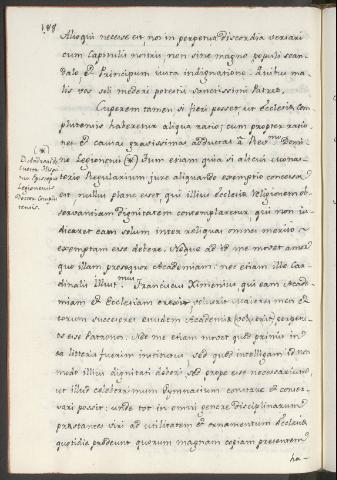 188
Alioqui necesse est, nos in perpetua Discordia versari
cum Capitulis nostris, non sine magno populi scan-
dalo, & Principum iusta indignatione. Quibus ma
lis vos soli mederi potestis Sanctissimi Patres.
Cuperem tamen si fieri posset, ut Ecclesia Com
plutensis haberetur aliqua ratio; cum propter ratio
nes et causas gravissimas adductas a Rev.mo Domi-
no Legionensi (*) Dum etiam quia si alicui
Regularium jure aliquando exemptio concessa
est, nullus plane esset, qui illius Ecclesia Religionem ob
servantiam dignitatem contemplaretur, qui non iu
dicaret eam solum inter reliquas omnes merito
exemptam esse debere. Neque ad id me movet amor
quo illam prosequor Academiam: nec etiam ille Car
dinalis Illust.mus Franciscus Ximenius, qui eam Acade
miam et Ecclesiam erexit,
esse Patronos. Nec me etiam movet quod primis in
ea litteris fuerim institutus, sed quod intelligam id non
modo illius dignitati deberi sed prope esse necessarium,
ut illud celeberrimum Gymnasium constare et conser
vari possit: unde tot in omni genere disciplinarum
prastantes viri ad utilitatem et ornamentum Ecclesia
quotidie prodeunt quorum magnam copiam presentem
ha-
(*)
Episcopus
Legionensis
Doctor Complu
tensis.